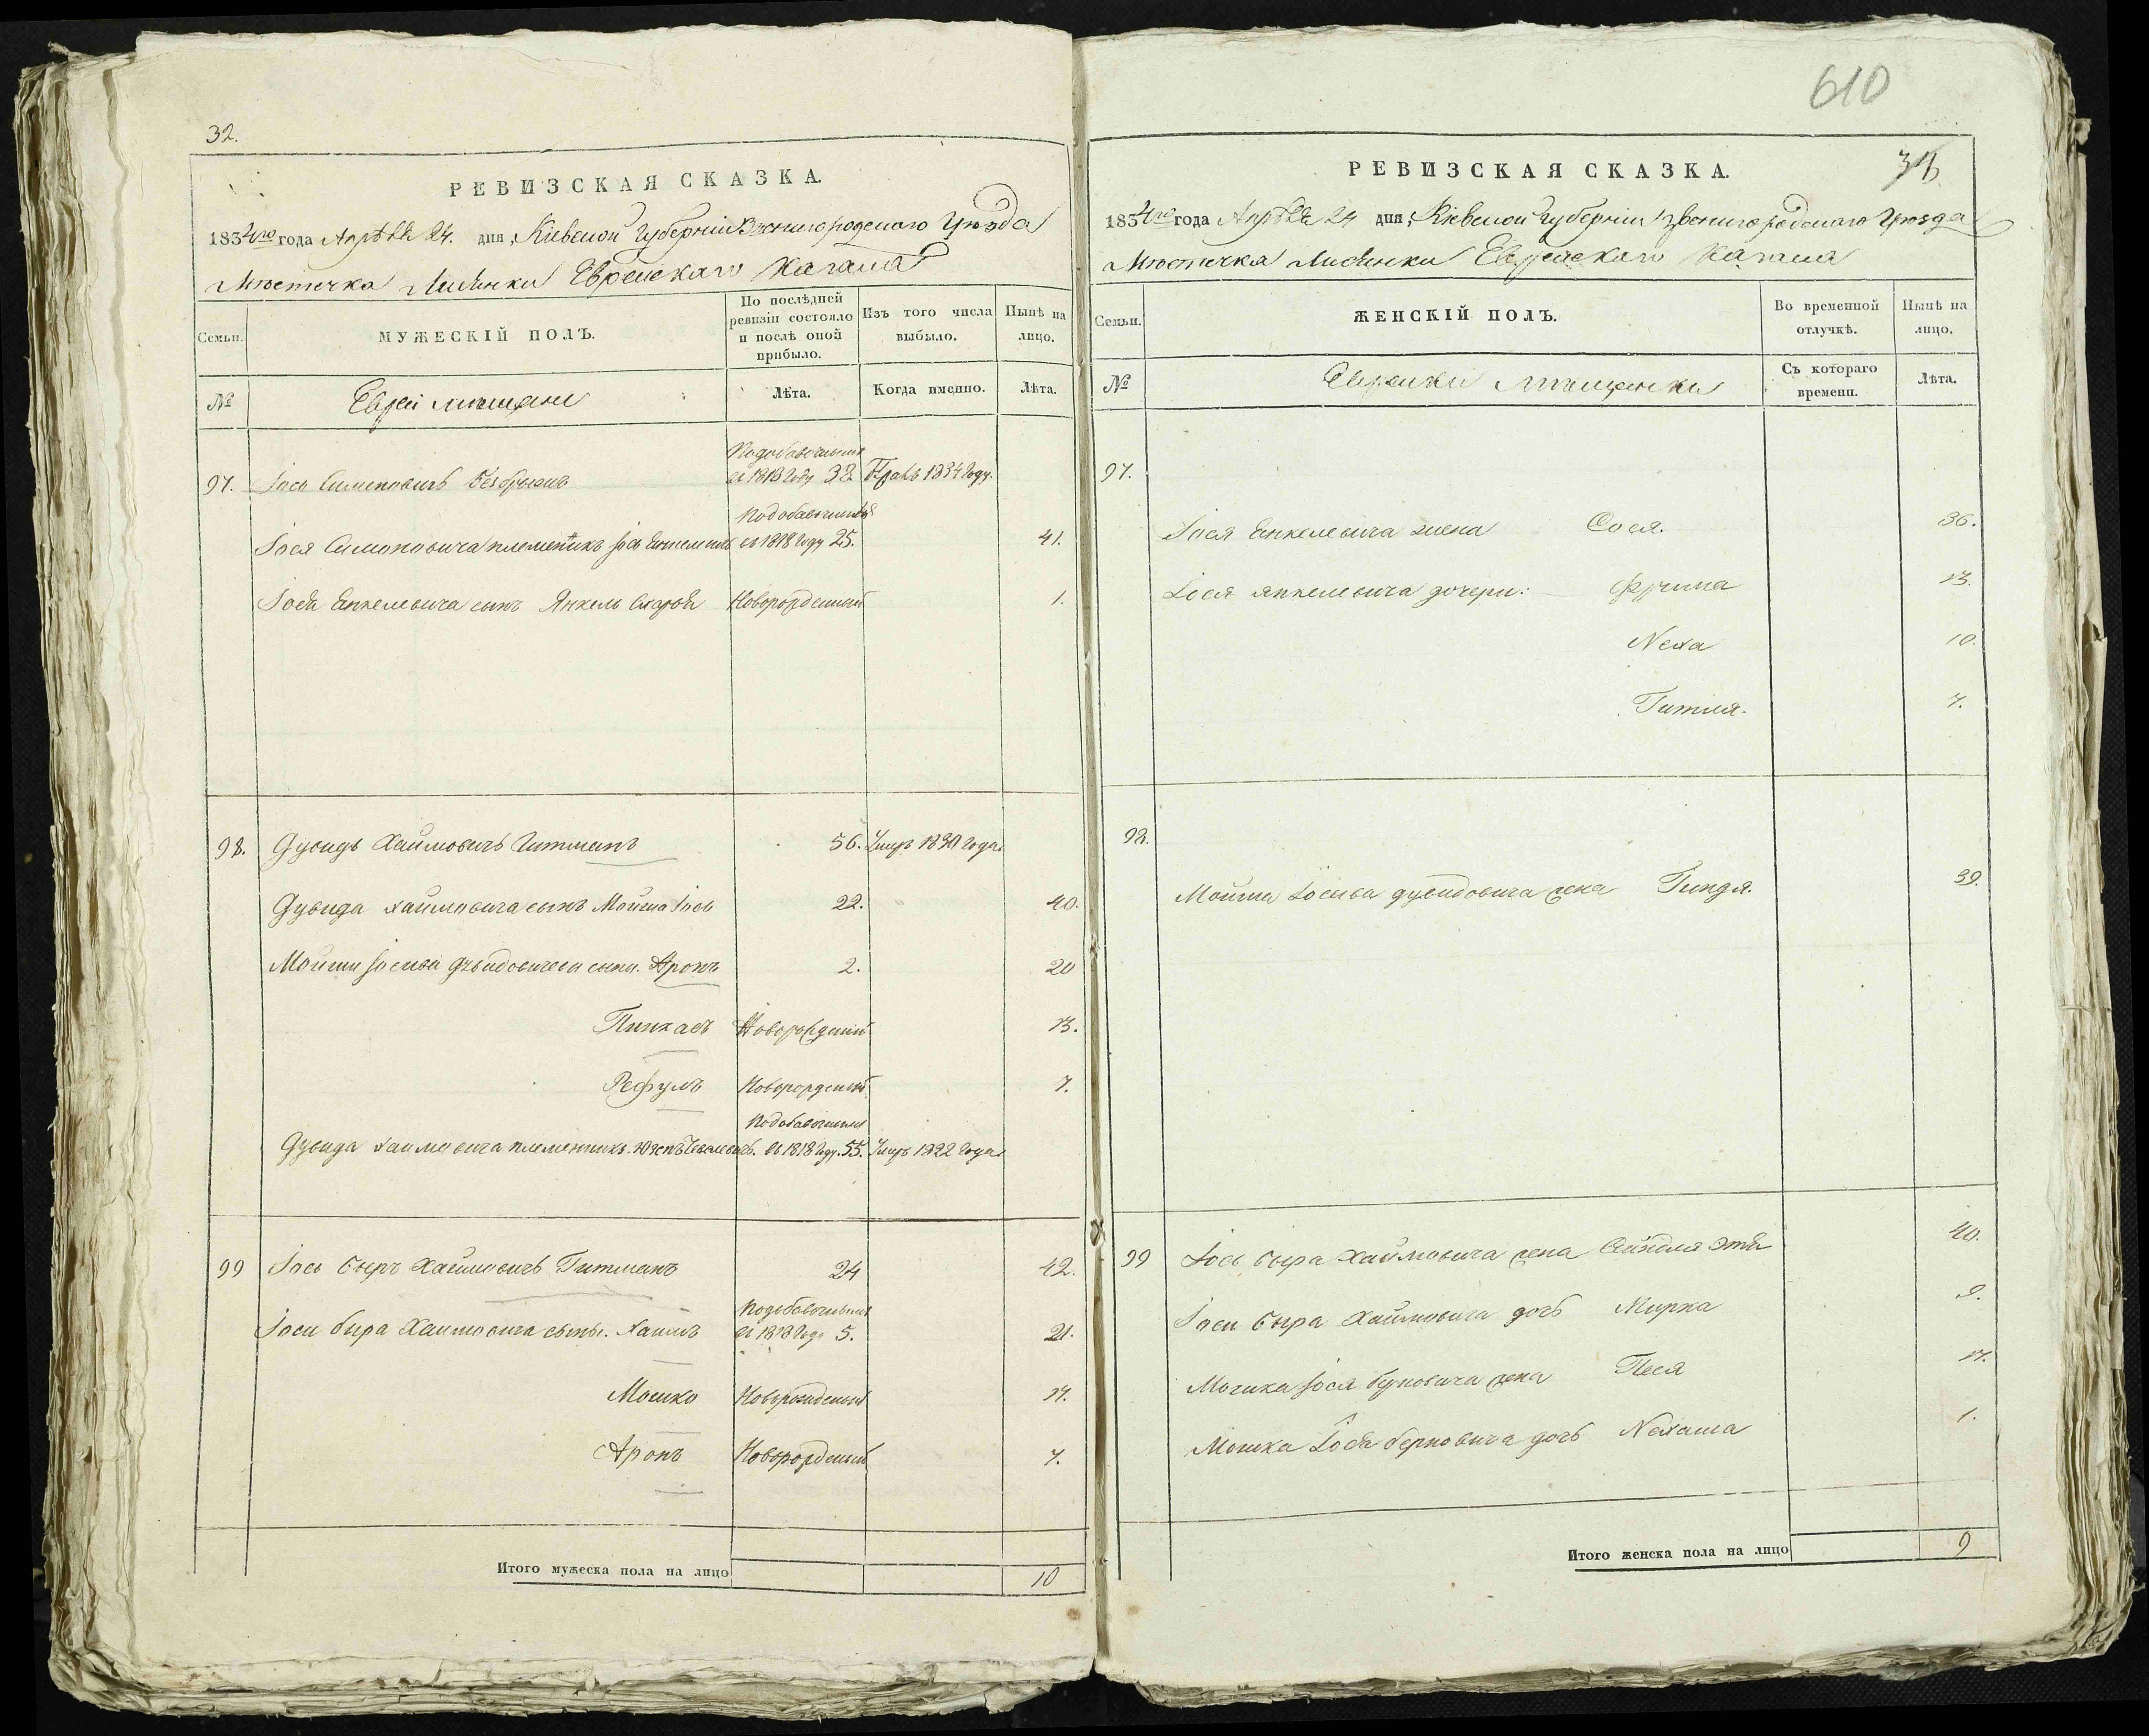 32.
РЕВИЗСКАЯ СКАЗКА.
1834го года Апрѣля 24. дня, Кіевской Губерніи Звенигородскаго Уѣзда
Мѣстечка Лисянки Еврейскаго Кагала
Семьи. МУЖЕСКІЙ ПОЛЪ. По послѣдней ревизіи состояло и послѣ оной прибыло. Изъ того числа выбыло. Нынѣ на лицо.
№ Евреи мѣщане Лѣта. Когда именно. Лѣта.
97. Іось Симоновичъ 1818 году 32 1834 году.
Іося Симоновича племеникъ Іось Янкелевичъ 1818 году 25. 41.
Іося Янкелевича сынъ Янкель Новорожденный 1.
98. Дувидъ Хаймовичъ Гитманъ 56. Умеръ 1830 года
Дувида Хаймовича сынъ Мойша Іось 22. 40.
Мойши Іосива Дувидовичева сыны. Аронъ 2. 20
Пинхасъ Новорожденный 13.
Рефулъ Новорожденный 7.
Дувида Хаимовича племенникъ 1818 году. 55. Умеръ 1822 года
99 Іось Беръ Хаимовичъ Гитманъ 24 42.
Іоси Бера Хаимовича сыны. Хаимъ 1818 года 5. 21.
Мошко Новорожденный 17.
Аронъ Новорожденный 7.
Итого мужеска пола на лицо 10
610
РЕВИЗСКАЯ СКАЗКА.
1834го года Апрѣля 24 дня, Кіевской Губерніи Звенигородскаго Уѣзда
Мѣстечка Лисянки Еврейскаго Кагала
Семьи. ЖЕНСКІЙ ПОЛЪ. Во временной отлучкѣ. Нынѣ на лицо.
№ Еврейки Мѣщанки Съ котораго времени. Лѣта.
97.
Іося Янкелевича жена Сося. 36.
Іося Янкелевича дочери: Фрима 13.
Неха 10.
Гитля. 7.
98.
Мойша Іосива Дувидовича жена Гиндя. 39.
99 Іось Бера Хаимовича жена Сейндля Этя 40.
Іоси Бера Хаймовича дочь Мирка 9.
Мошка Іося Берковича жена Песя 17.
Мошка Іося Берковича дочь Нехама 1.
Итого женска пола на лицо 9